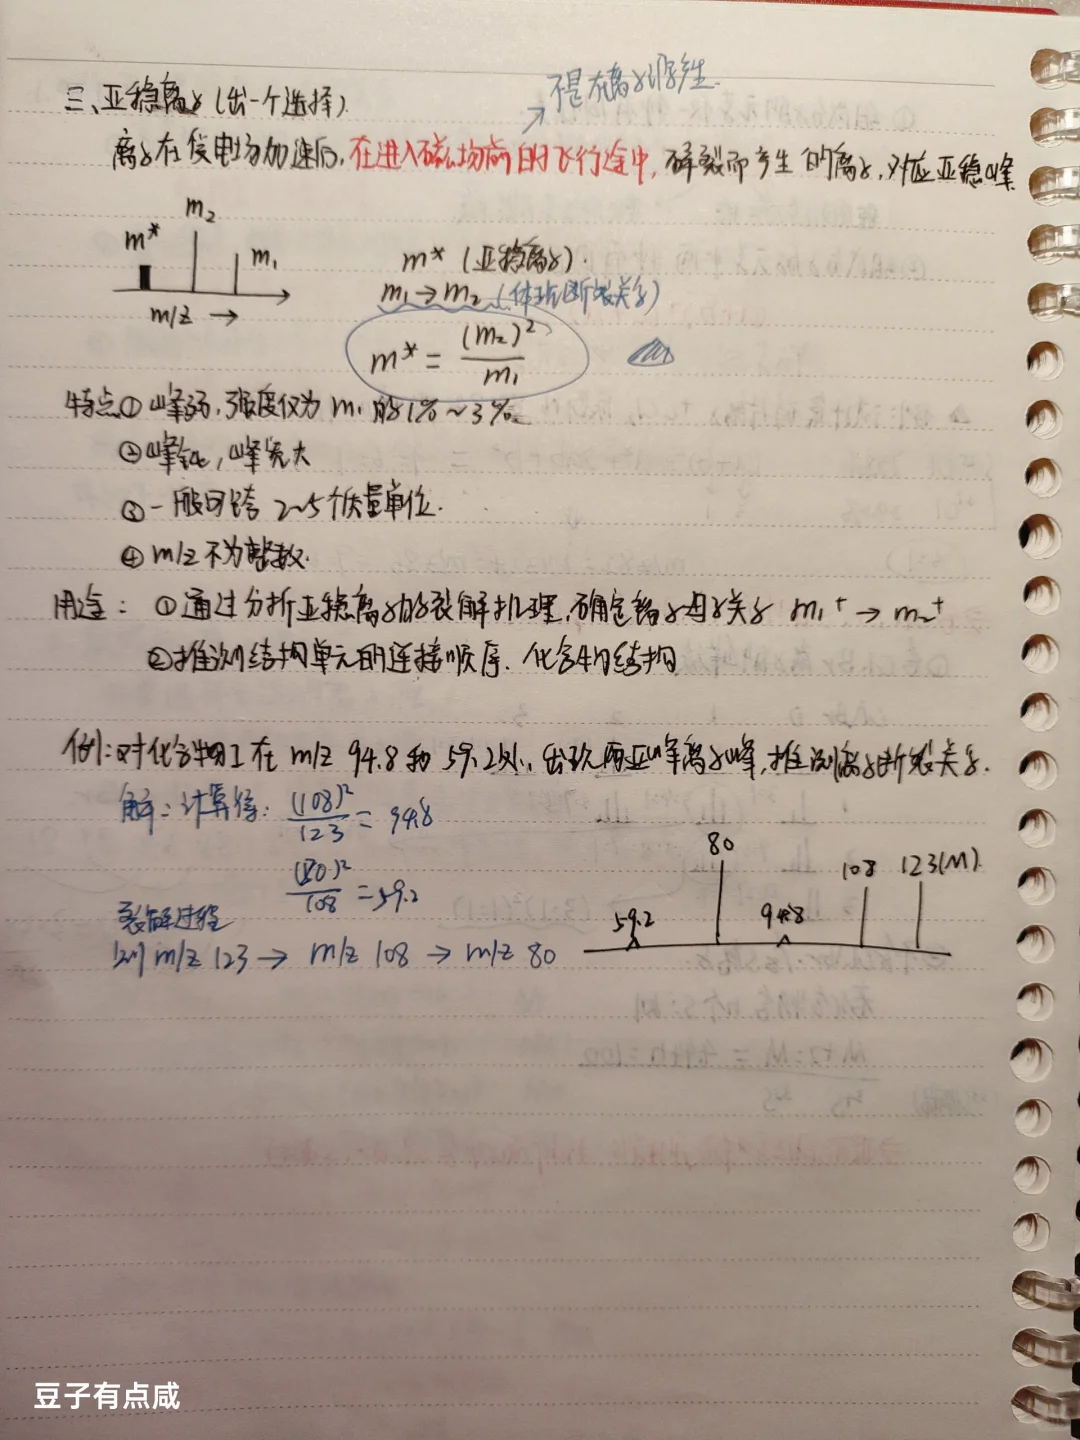 不是在离子源产生.
三、亚稳离子(出一个选择).
离子在使电场加速后,在进入磁场前的飞行途中,碎裂而产生的离子,对应亚稳峰
m* m₂ m₁
m/z →
m* (亚稳离子).
m₁→m₂(体现断裂关系)
m* = (m₂)²/m₁
特点①峰弱,强度仅为 m₁ 的1%~3%。
②峰钝,峰宽大
③一般可跨 2~5个质量单位.
④m/z 不为整数.
用途: ①通过分析亚稳离子的裂解机理,确定离子母子关系 m₁⁺ → m₂⁺
②推测结构单元的连接顺序.化合物结构
例:对化合物工在 m/z 94.8 和 59.2处,出现两亚峰离子峰,推测离子断裂关系.
解:计算得: (108)²/123 = 94.8
(80)²/108 =59.2
裂解过程
则 m/z 123 → m/z 108 → m/z 80
59.2 80 94.8 108 123(M).
豆子有点咸